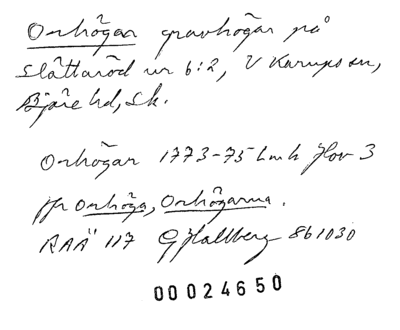 Orihögar gravhögar på
Slättaröd nr 6:2, V Karups sn,
Bjäre hd, Sk.
Orhögar 1773-75 Lmh Hov 3
jfr Orhöga, Orhögarna.
RAÄ 117 G Hallberg 861030
00024650